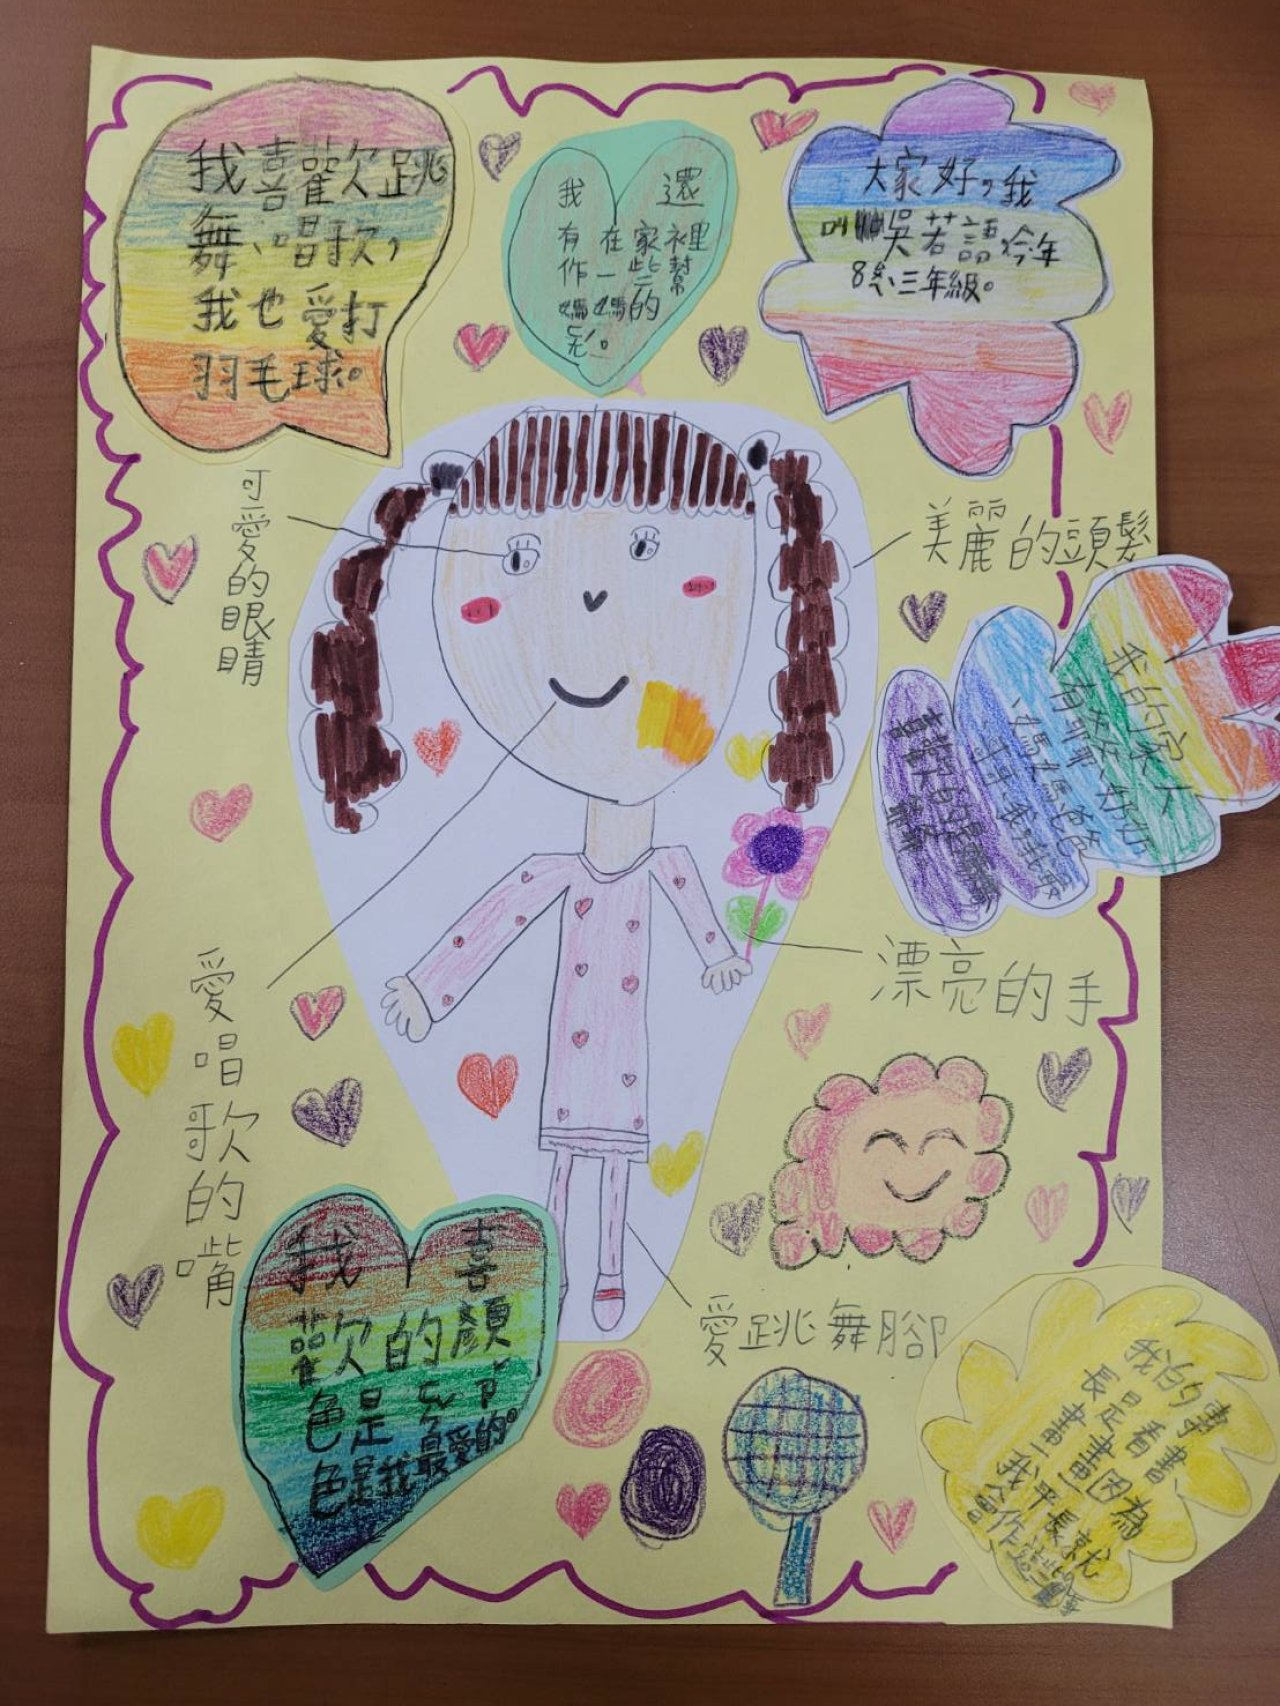 我喜歡跳
舞、唱歌,
我也愛打
羽毛球。
還
我
有在家裡
作一些幫
媽媽的
大家好,我
叫吳若語,今年
8歲三年級。
可愛的眼睛
美麗的頭髮
我的家人
奶奶
媽媽爸爸
愛唱歌的嘴
漂亮的手
我喜
歡的顏
色是
色是我最愛的。
愛跳舞腳
我的專
長是看書
畫畫因為
我平長就
會作這些事